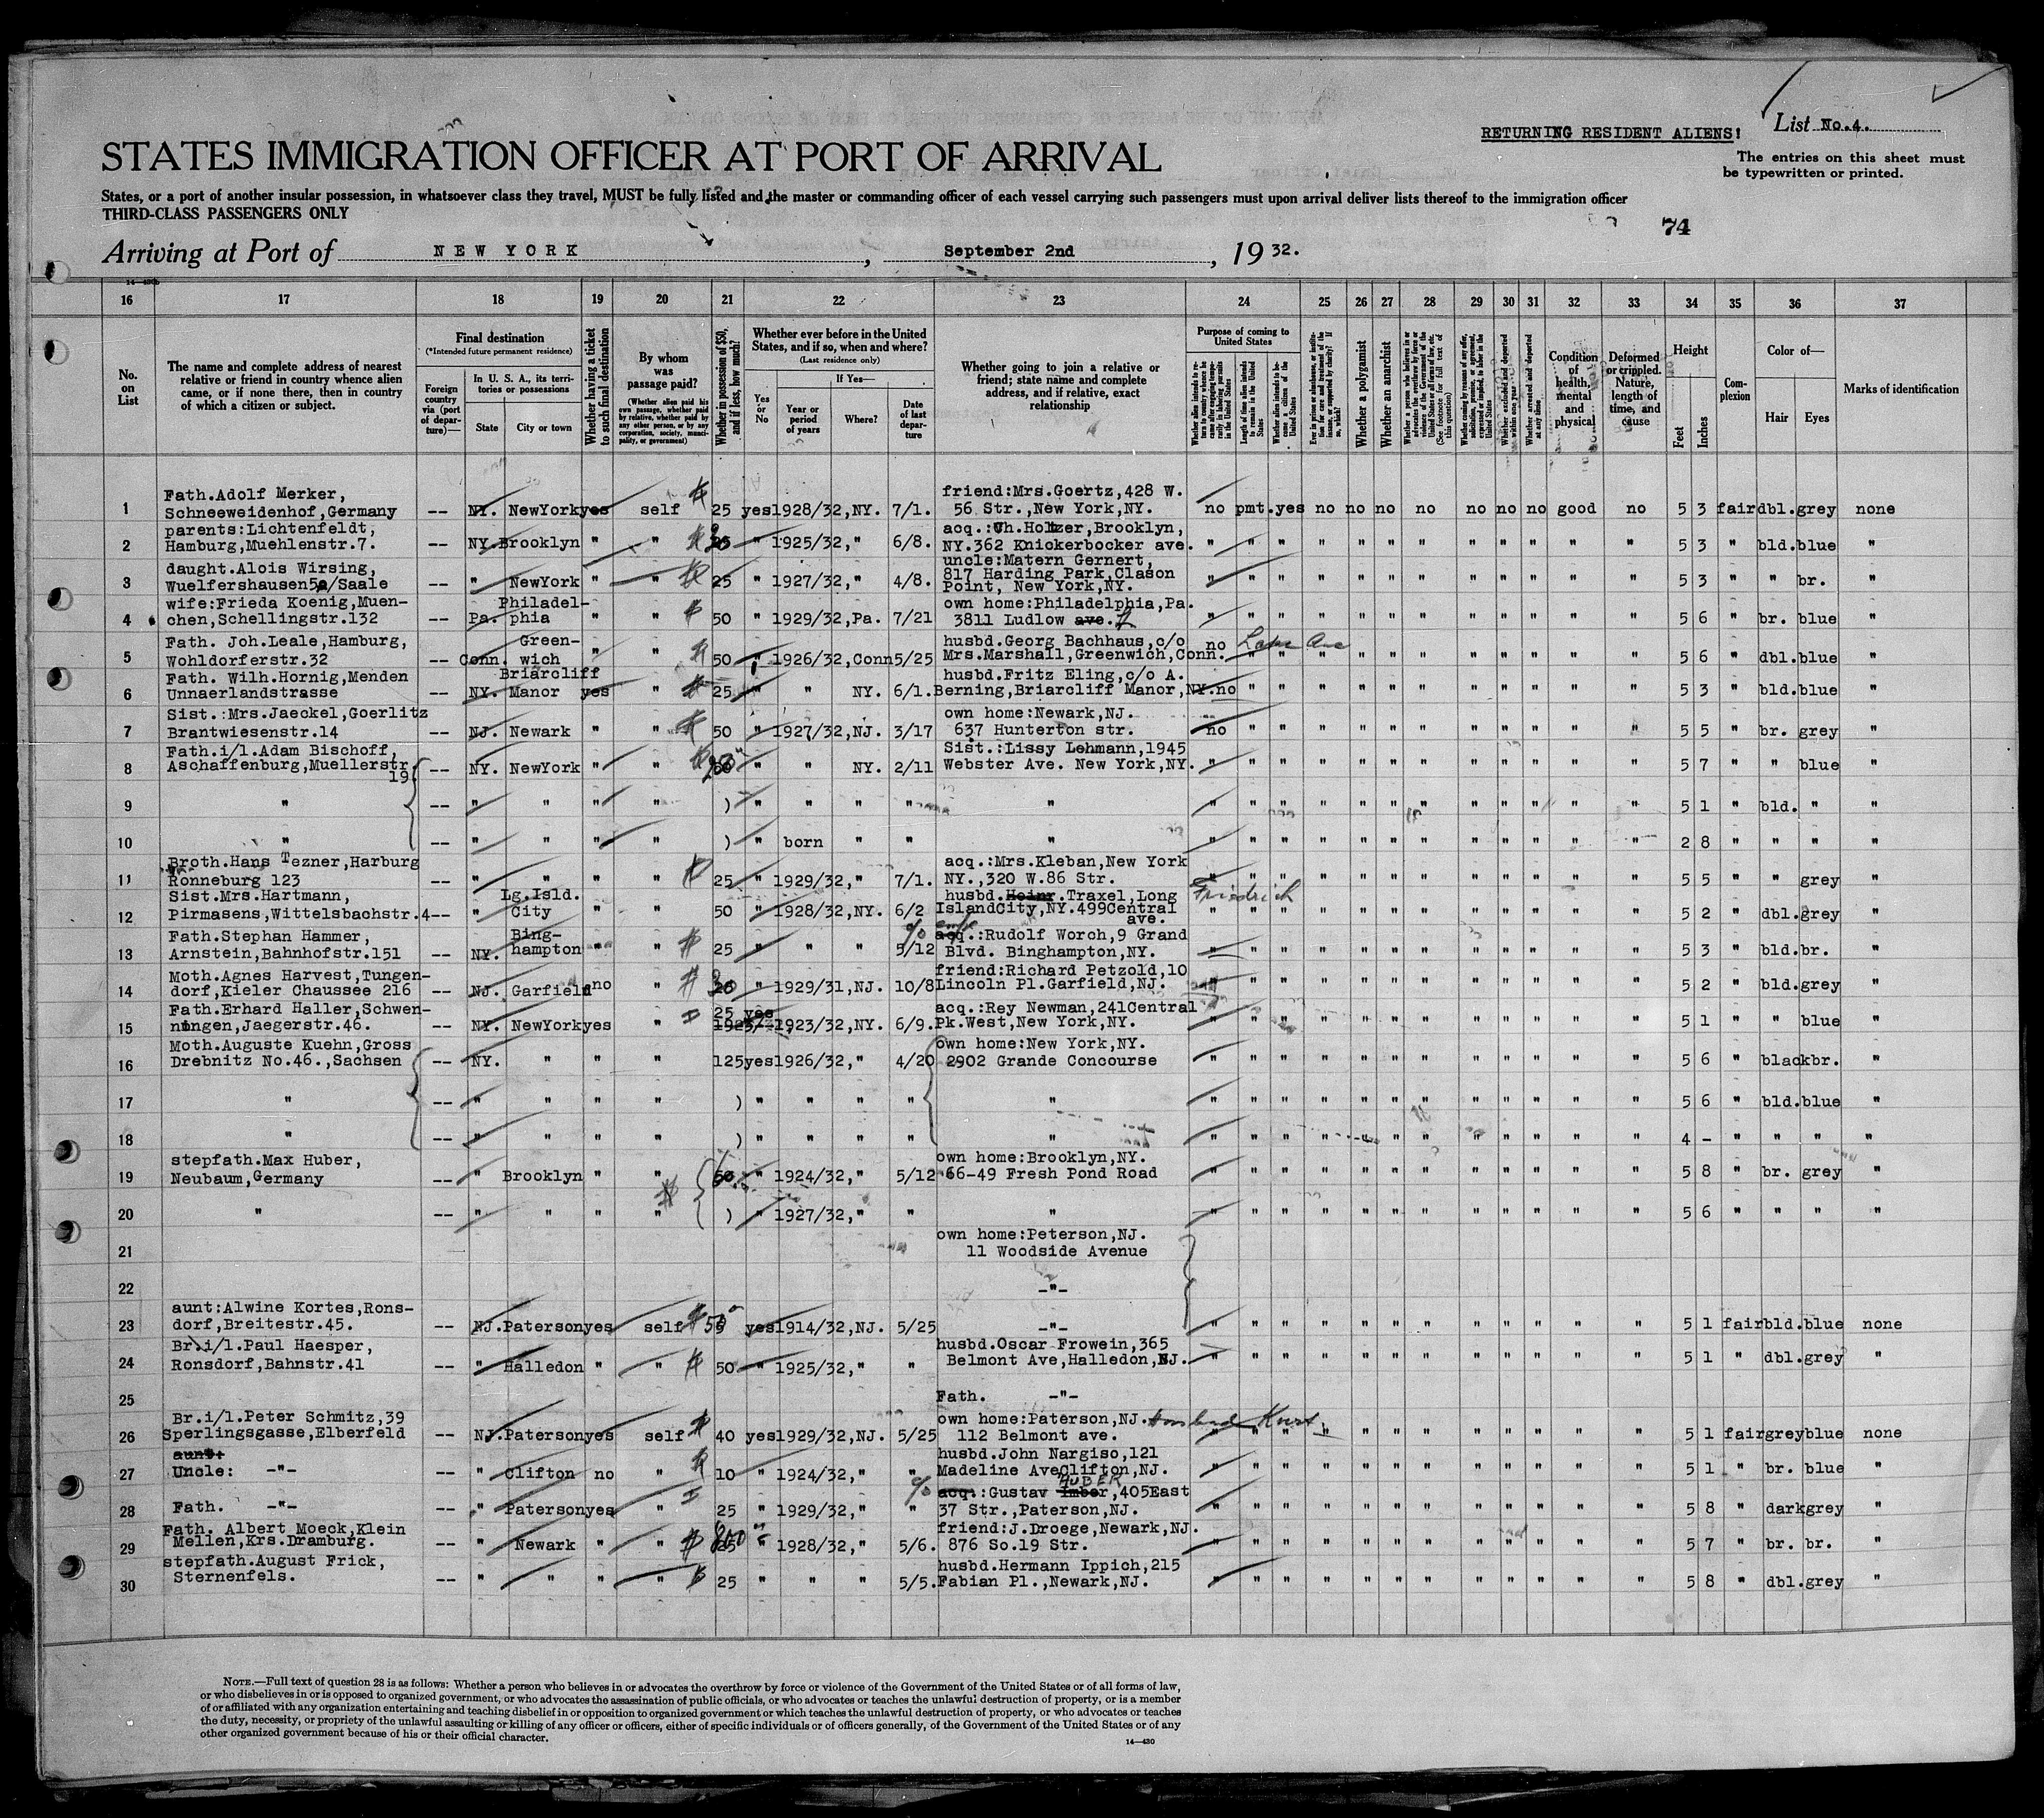 RETURNING RESIDENT ALIENS!
List No.4.
STATES IMMIGRATION OFFICER AT PORT OF ARRIVAL
The entries on this sheet must
be typewritten or printed.
States, or a port of another insular possession, in whatsoever class they travel, MUST be fully listed and the master or commanding officer of each vessel carrying such passengers must upon arrival deliver lists thereof to the immigration officer
THIRD-CLASS PASSENGERS ONLY
74
Arriving at Port of NEW YORK, September 2nd, 1932.
16 17 18 19 20 21 22 23 24 25 26 27 28 29 30 31 32 33 34 35 36 37
No. on List
The name and complete address of nearest relative or friend in country whence alien came, or if none there, then in country of which a citizen or subject.
Final destination
(*Intended future permanent residence)
Foreign country via (port of departure)—
In U. S. A., its territories or possessions
State City or town
Whether having a ticket to such final destination
By whom was passage paid?
(Whether alien paid his own passage, whether paid by relative, whether paid by any other person, or by any corporation, society, municipality, or government)
Whether in possession of $50, and if less, how much?
Whether ever before in the United States, and if so, when and where?
(Last residence only)
Yes or No
If Yes—
Year or period of years
Where?
Date of last departure
Whether going to join a relative or friend; state name and complete address, and if relative, exact relationship
Purpose of coming to United States
Length of time alien intends to remain in the United States
Whether alien intends to become a citizen of the United States
Whether a polygamist
Whether an anarchist
Condition of health, mental and physical
Deformed or crippled. Nature, length of time, and cause
Height
Feet Inches
Complexion
Color of—
Hair Eyes
Marks of identification
1 Fath.Adolf Merker, Schneeweidenhof,Germany -- NY. NewYork yes self 25 yes 1928/32,NY. 7/1. friend:Mrs.Goertz,428 W. 56 Str.,New York,NY. no pmt. yes no no no no no no no good no 5 3 fair dbl. grey none
2 parents:Lichtenfeldt, Hamburg,Muehlenstr.7. -- NY. Brooklyn " " " 1925/32," 6/8. acq.:Ch.Holtzer,Brooklyn, NY.362 Knickerbocker ave. " " " " " " " " " " " " 5 3 " bld. blue "
3 daught.Alois Wirsing, Wuelfershausen5a/Saale -- " NewYork " " 25 " 1927/32," 4/8. uncle:Matern Gernert, 817 Harding Park,Clason Point, New York,NY. " " " " " " " " " " " " 5 3 " " br. "
4 wife:Frieda Koenig,Muenchen,Schellingstr.132 -- Pa. Philadelphia " " 50 " 1929/32,Pa. 7/21 own home:Philadelphia,Pa. 3811 Ludlow ave. " " " " " " " " " " " " 5 6 " br. blue "
5 Fath. Joh.Leale,Hamburg, Wohldorferstr.32 -- Conn. Greenwich " " 50 " 1926/32,Conn 5/25 husbd.Georg Bachhaus,c/o Mrs.Marshall,Greenwich,Conn. no Lake Ave " " " " " " " " " " " 5 6 " dbl. blue "
6 Fath. Wilh.Hornig,Menden Unnaerlandstrasse -- NY. Briarcliff Manor yes " 25 " " NY. 6/1. husbd.Fritz Eling,c/o A. Berning,Briarcliff Manor,NY. no " " " " " " " " " " " 5 3 " bld. blue "
7 Sist.:Mrs.Jaeckel,Goerlitz Brantwiesenstr.14 -- NJ. Newark " " 50 " 1927/32,NJ. 3/17 own home:Newark,NJ. 637 Hunterton str. no " " " " " " " " " " " 5 5 " br. grey "
8 Fath.i/l.Adam Bischoff, Aschaffenburg,Muellerstr. 19 -- NY. NewYork " " " " NY. 2/11 Sist.:Lissy Lehmann,1945 Webster Ave. New York,NY. " " " " " " " " " " " " 5 7 " " blue "
9 " -- " " " " ) " " " " " " " " " " " " " " " " " " 5 1 " bld. " "
10 " -- " " " " ) " born " " " " " " " " " " " " " " " " 2 8 " " " "
11 Broth.Hans Tezner,Harburg Ronneburg 123 -- " " " " 25 " 1929/32," 7/1. acq.:Mrs.Kleban,New York NY.,320 W.86 Str. " " " " " " " " " " " 5 5 " " grey "
12 Sist.Mrs.Hartmann, Pirmasens,Wittelsbachstr.4 -- " Lg.Isld. City " " 50 " 1928/32,NY. 6/2 husbd.Heinr.Traxel,Long IslandCity,NY.499Central ave. Friedrich " " " " " " " " " " " " 5 2 " dbl. grey "
13 Fath.Stephan Hammer, Arnstein,Bahnhofstr.151 -- NY. Binghampton " " 25 " " " 5/12 c/o acq.:Rudolf Worch,9 Grand Blvd. Binghampton,NY. " " " " " " " " " " " " 5 3 " bld. br. "
14 Moth.Agnes Harvest,Tungendorf,Kieler Chaussee 216 -- NJ. Garfield no " " 1929/31,NJ. 10/8 friend:Richard Petzold,10 Lincoln Pl.Garfield,NJ. " " " " " " " " " " " " 5 2 " bld. grey "
15 Fath.Erhard Haller,Schwenningen,Jaegerstr.46. -- NY. NewYork yes " 25 yes 1923/32,NY. 6/9. acq.:Rey Newman,241Central Pk.West,New York,NY. " " " " " " " " " " " " 5 1 " " blue "
16 Moth.Auguste Kuehn,Gross Drebnitz No.46.,Sachsen -- NY. " " " 125 yes 1926/32," 4/20 own home:New York,NY. 2902 Grande Concourse " " " " " " " " " " " " 5 6 " black br. "
17 " -- " " " " ) " " " " " " " " " " " " " " " " " " 5 6 " bld. blue "
18 " -- " " " " ) " " " " " " " " " " " " " " " " " " 4 - " " " "
19 stepfath.Max Huber, Neubaum,Germany -- " Brooklyn " " 50 " 1924/32," 5/12 own home:Brooklyn,NY. 66-49 Fresh Pond Road " " " " " " " " " " " " 5 8 " br. grey "
20 " -- " " " " ) " 1927/32," " " " " " " " " " " " " " " " 5 6 " " " "
21 own home:Peterson,NJ. 11 Woodside Avenue
22 -"-
23 aunt:Alwine Kortes,Ronsdorf,Breitestr.45. -- NJ. Paterson yes self 50 yes 1914/32,NJ. 5/25 -"- " " " " " " " " " " " " 5 1 fair bld. blue none
24 Br.i/l.Paul Haesper, Ronsdorf,Bahnstr.41 -- " Halledon " " 50 " 1925/32," " husbd.Oscar Frowein,365 Belmont Ave,Halledon,NJ. " " " " " " " " " " " " 5 1 " dbl. grey "
25 Fath. -"-
26 Br.i/l.Peter Schmitz,39 Sperlingsgasse,Elberfeld -- NJ. Paterson yes self 40 yes 1929/32,NJ. 5/25 own home:Paterson,NJ. husband Kurt 112 Belmont ave. " " " " " " " " " " " " 5 1 fair grey blue none
27 aunt: Uncle: -"- -- " Clifton no " 10 " 1924/32," " husbd.John Nargiso,121 Madeline Ave Clifton,NJ. " " " " " " " " " " " " 5 1 " br. blue "
28 Fath. -"- -- " Paterson yes " 25 " 1929/32," " c/o acq.:Gustav Imber HUBER,405East 37 Str.,Paterson,NJ. " " " " " " " " " " " " 5 8 " dark grey "
29 Fath. Albert Moeck,Klein Mellen,Krs.Dramburg. -- " Newark " " " 1928/32," 5/6. friend:J.Droege,Newark,NJ. 876 So.19 Str. " " " " " " " " " " " " 5 7 " br. br. "
30 stepfath.August Frick, Sternenfels. -- " " " " 25 " " " 5/5. husbd.Hermann Ippich,215 Fabian Pl.,Newark,NJ. " " " " " " " " " " " " 5 8 " dbl. grey "
NOTE.—Full text of question 28 is as follows: Whether a person who believes in or advocates the overthrow by force or violence of the Government of the United States or of all forms of law,
or who disbelieves in or is opposed to organized government, or who advocates the assassination of public officials, or who advocates or teaches the unlawful destruction of property, or is a member
of or affiliated with any organization entertaining and teaching disbelief in or opposition to organized government or which teaches the unlawful destruction of property, or who advocates or teaches
the duty, necessity, or propriety of the unlawful assaulting or killing of any officer or officers, either of specific individuals or of officers generally, of the Government of the United States or of any
other organized government because of his or their official character.
14—430